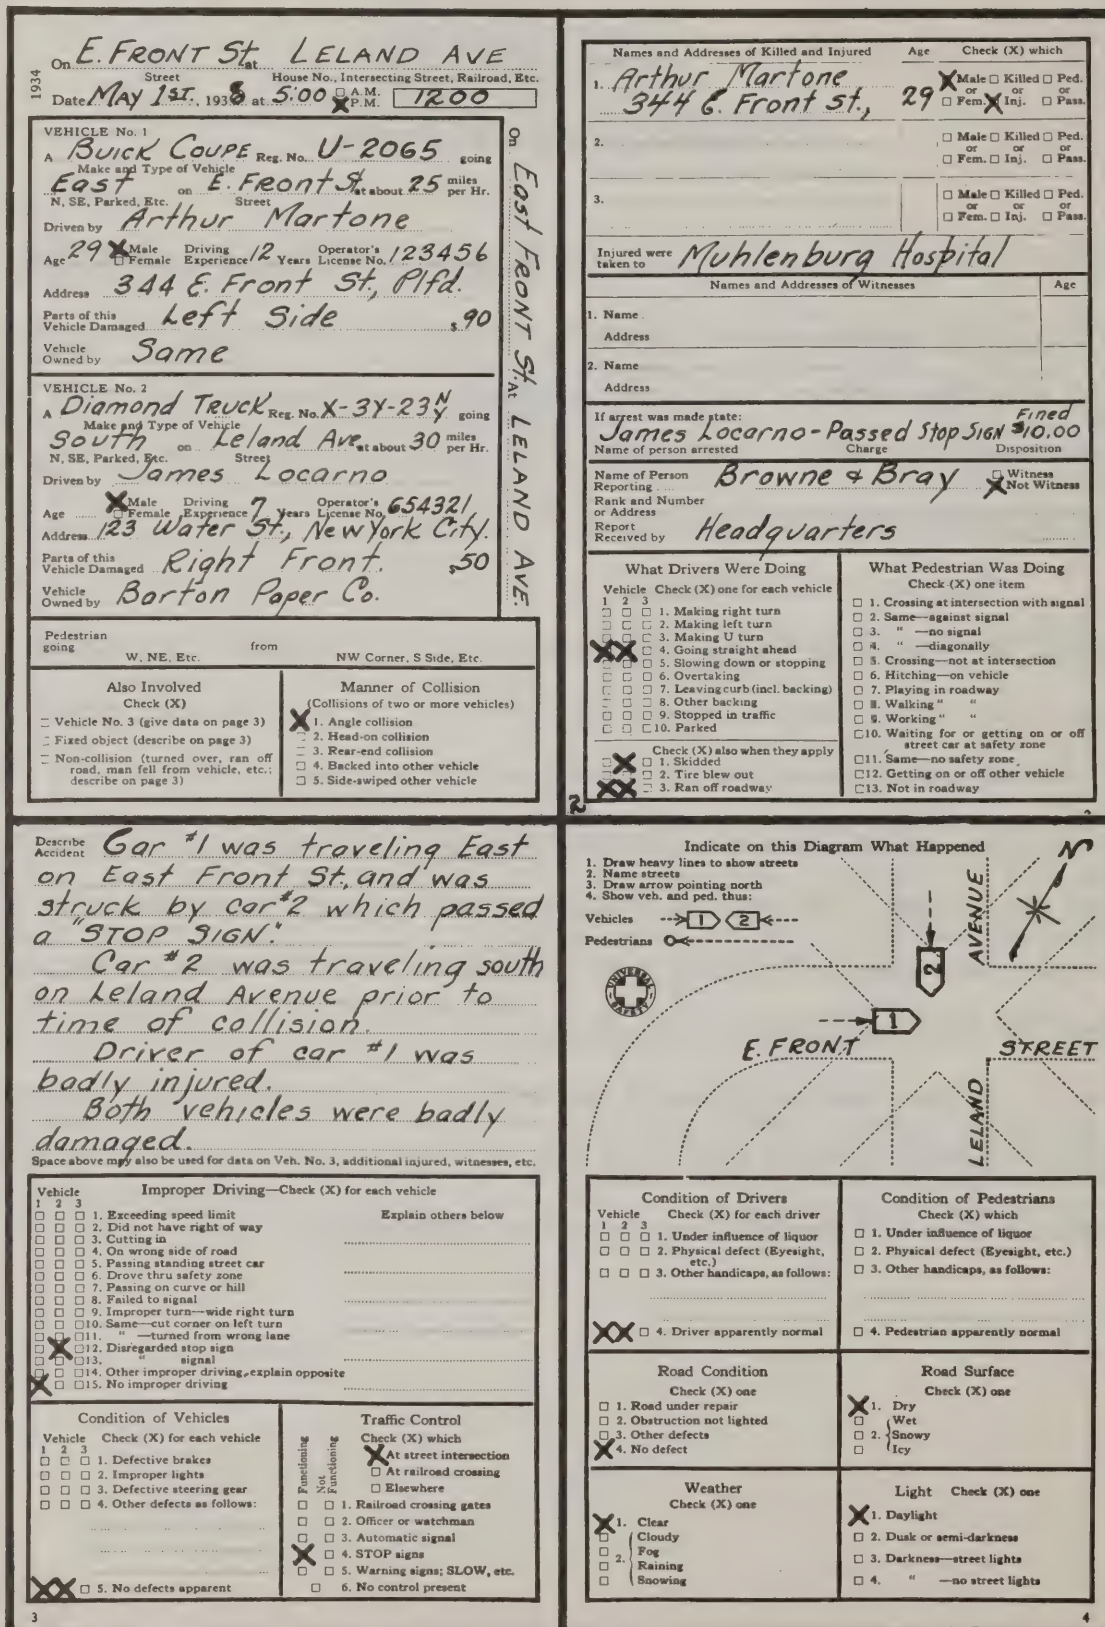 1934
On E. FRONT St. at LELAND AVE
Street House No., Intersecting Street, Railroad, Etc.
Date MAY 1ST., 1938 at 5:00 □ A.M. X P.M. 1200
VEHICLE No. 1
A BUICK COUPE Reg. No. U-2065 going
Make and Type of Vehicle
East on E. Front St. at about 25 miles per Hr.
N, SE, Parked, Etc. Street
Driven by Arthur Martone
Age 29 X Male □ Female Driving Experience 12 Years Operator's License No. 123456
Address 344 E. Front St., Plfd.
Parts of this Vehicle Damaged Left Side $90
Vehicle Owned by Same
VEHICLE No. 2
A Diamond Truck Reg. No. X-3Y-23 NY going
Make and Type of Vehicle
South on Leland Ave. at about 30 miles per Hr.
N, SE, Parked, Etc. Street
Driven by James Locarno
Age X Male □ Female Driving Experience 7 Years Operator's License No. 654321
Address 123 Water St., New York City.
Parts of this Vehicle Damaged Right Front. $50
Vehicle Owned by Barton Paper Co.
On EAST FRONT St. At LELAND AVE.
Pedestrian going from
W, NE, Etc. NW Corner, S Side, Etc.
Also Involved
Check (X)
□ Vehicle No. 3 (give data on page 3)
□ Fixed object (describe on page 3)
□ Non-collision (turned over, ran off
road, man fell from vehicle, etc.;
describe on page 3)
Manner of Collision
(Collisions of two or more vehicles)
X 1. Angle collision
□ 2. Head-on collision
□ 3. Rear-end collision
□ 4. Backed into other vehicle
□ 5. Side-swiped other vehicle
Names and Addresses of Killed and Injured Age Check (X) which
1. Arthur Martone
344 E. Front St., 29 X Male □ Killed □ Ped.
or or or
□ Fem. X Inj. □ Pass.
2. □ Male □ Killed □ Ped.
or or or
□ Fem. □ Inj. □ Pass.
3. □ Male □ Killed □ Ped.
or or or
□ Fem. □ Inj. □ Pass.
Injured were taken to Muhlenburg Hospital
Names and Addresses of Witnesses Age
1. Name
Address
2. Name
Address
If arrest was made state: Fined
James Locarno - Passed Stop SIGN $10.00
Name of person arrested Charge Disposition
Name of Person Reporting Browne & Bray □ Witness X Not Witness
Rank and Number or Address
Report Received by Headquarters
What Drivers Were Doing
Vehicle Check (X) one for each vehicle
1 2 3
□ □ □ 1. Making right turn
□ □ □ 2. Making left turn
□ □ □ 3. Making U turn
X X □ 4. Going straight ahead
□ □ □ 5. Slowing down or stopping
□ □ □ 6. Overtaking
□ □ □ 7. Leaving curb (incl. backing)
□ □ □ 8. Other backing
□ □ □ 9. Stopped in traffic
□ □ □ 10. Parked
Check (X) also when they apply
□ X □ 1. Skidded
□ □ □ 2. Tire blew out
X X □ 3. Ran off roadway
What Pedestrian Was Doing
Check (X) one item
□ 1. Crossing at intersection with signal
□ 2. Same—against signal
□ 3. " —no signal
□ 4. " —diagonally
□ 5. Crossing—not at intersection
□ 6. Hitching—on vehicle
□ 7. Playing in roadway
□ 8. Walking " "
□ 9. Working " "
□ 10. Waiting for or getting on or off
street car at safety zone
□ 11. Same—no safety zone
□ 12. Getting on or off other vehicle
□ 13. Not in roadway
2
Describe Accident Car #1 was traveling East
on East Front St., and was
struck by car #2 which passed
a "STOP SIGN."
Car #2 was traveling south
on Leland Avenue prior to
time of collision.
Driver of car #1 was
badly injured.
Both vehicles were badly
damaged.
Space above may also be used for data on Veh. No. 3, additional injured, witnesses, etc.
Vehicle Improper Driving—Check (X) for each vehicle
1 2 3
□ □ □ 1. Exceeding speed limit Explain others below
□ □ □ 2. Did not have right of way
□ □ □ 3. Cutting in
□ □ □ 4. On wrong side of road
□ □ □ 5. Passing standing street car
□ □ □ 6. Drove thru safety zone
□ □ □ 7. Passing on curve or hill
□ □ □ 8. Failed to signal
□ □ □ 9. Improper turn—wide right turn
□ □ □ 10. Same—cut corner on left turn
□ □ □ 11. " —turned from wrong lane
□ X □ 12. Disregarded stop sign
□ □ □ 13. " signal
□ □ □ 14. Other improper driving, explain opposite
X □ □ 15. No improper driving
Condition of Vehicles
Vehicle Check (X) for each vehicle
1 2 3
□ □ □ 1. Defective brakes
□ □ □ 2. Improper lights
□ □ □ 3. Defective steering gear
□ □ □ 4. Other defects as follows:
X X □ 5. No defects apparent
Traffic Control
Check (X) which
X At street intersection
□ At railroad crossing
□ Elsewhere
Functioning
Not Functioning
□ □ 1. Railroad crossing gates
□ □ 2. Officer or watchman
□ □ 3. Automatic signal
X □ 4. STOP signs
□ □ 5. Warning signs; SLOW, etc.
□ 6. No control present
3
Indicate on this Diagram What Happened
1. Draw heavy lines to show streets
2. Name streets
3. Draw arrow pointing north
4. Show veh. and ped. thus:
Vehicles 1 2
Pedestrians
UNIVERSAL SAFETY
N
AVENUE
2
1
E. FRONT STREET
LELAND
Condition of Drivers
Vehicle Check (X) for each driver
1 2 3
□ □ □ 1. Under influence of liquor
□ □ □ 2. Physical defect (Eyesight,
etc.)
□ □ □ 3. Other handicaps, as follows:
X X □ 4. Driver apparently normal
Condition of Pedestrians
Check (X) which
□ 1. Under influence of liquor
□ 2. Physical defect (Eyesight, etc.)
□ 3. Other handicaps, as follows:
□ 4. Pedestrian apparently normal
Road Condition
Check (X) one
□ 1. Road under repair
□ 2. Obstruction not lighted
□ 3. Other defects
X 4. No defect
Road Surface
Check (X) one
X 1. Dry
□ Wet
□ 2. Snowy
□ Icy
Weather
Check (X) one
X 1. Clear
□ Cloudy
□ 2. Fog
□ Raining
□ Snowing
Light Check (X) one
X 1. Daylight
□ 2. Dusk or semi-darkness
□ 3. Darkness—street lights
□ 4. " —no street lights
4